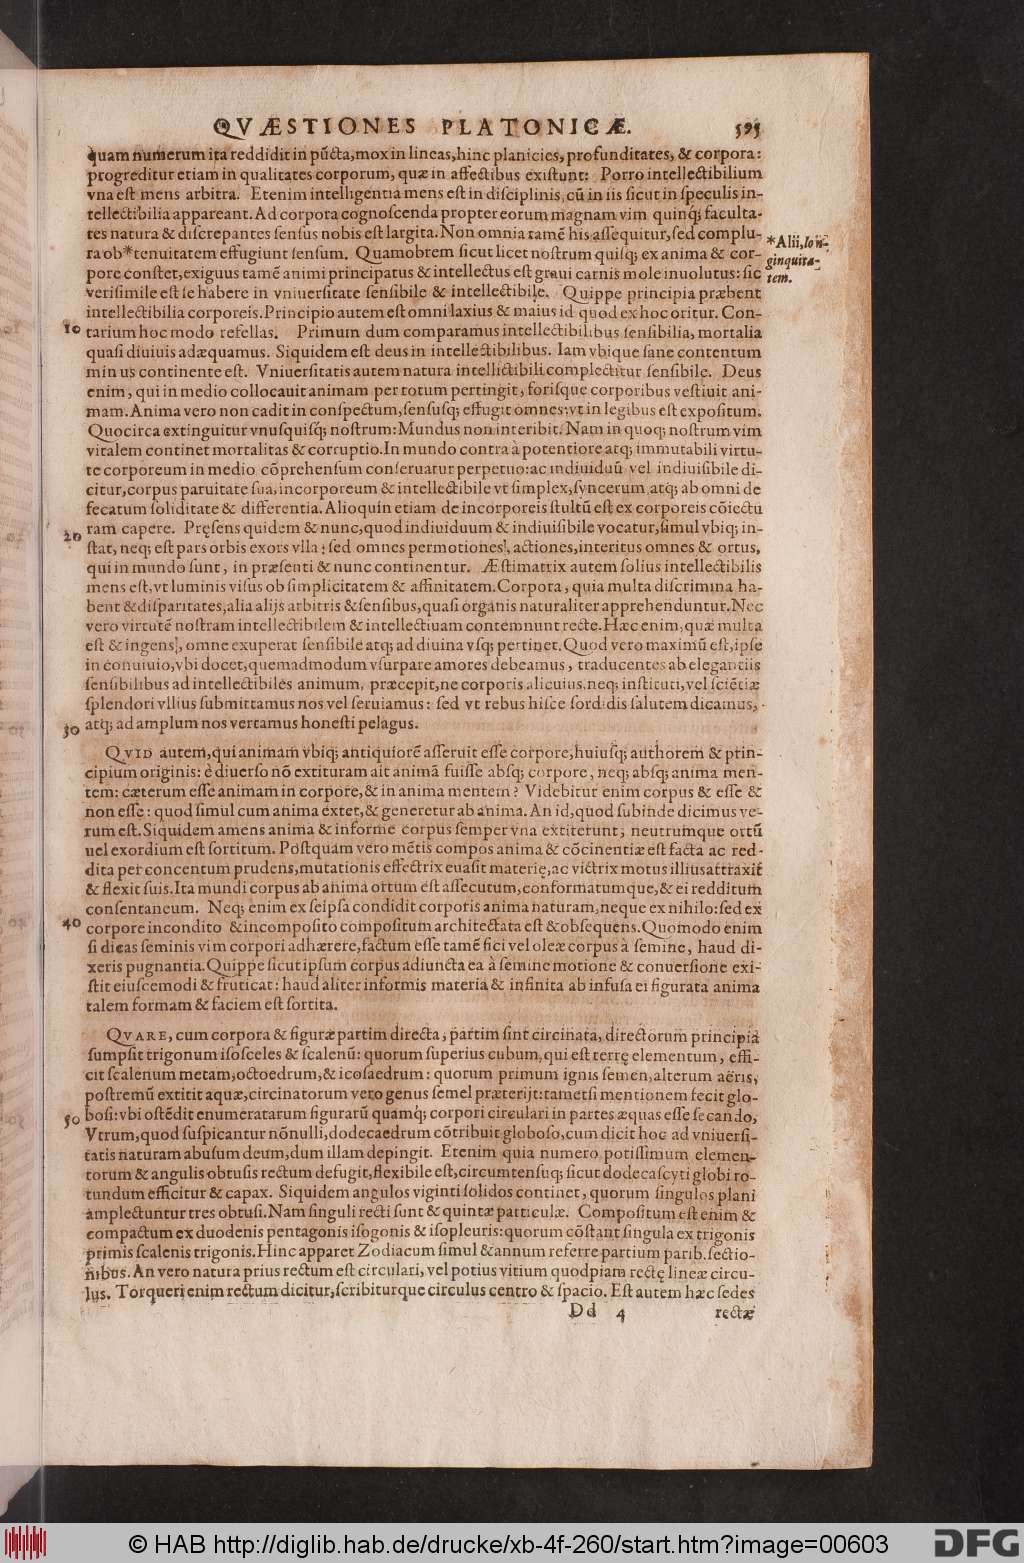 QVÆSTIONES PLATONICÆ. 595
quam numerum ita reddidit in pūcta, mox in lineas, hinc planicies, profunditates, & corpora:
progreditur etiam in qualitates corporum, quæ in affectibus existunt: Porro intellectibilium
vna est mens arbitra. Etenim intelligentia mens est in disciplinis, cū in iis sicut in speculis in-
tellectibilia appareant. Ad corpora cognoscenda propter eorum magnam vim quinq; faculta-
tes natura & discrepantes sensus nobis est largita. Non omnia tamē his assequitur, sed complu-
ra ob*tenuitatem effugiunt sensum. Quamobrem sicut licet nostrum quisq; ex anima & cor-
*Alii, lon-
ginquita-
tem.
pore constet, exiguus tamē animi principatus & intellectus est graui carnis mole inuolutus: sic
verisimile est se habere in vniuersitate sensibile & intellectibile. Quippe principia præbent
intellectibilia corporeis. Principio autem est omni laxius & maius id quod ex hoc oritur. Con-
10 tarium hoc modo refellas. Primum dum comparamus intellectibilibus sensibilia, mortalia
quasi diuiuis adæquamus. Siquidem est deus in intellectibilibus. Iam vbique sane contentum
minus continente est. Vniuersitatis autem natura intellictibili complectitur sensibile. Deus
enim, qui in medio collocauit animam per totum pertingit, forisque corporibus vestiuit ani-
mam. Anima vero non cadit in conspectum, sensusq; effugit omnes: vt in legibus est expositum.
Quocirca extinguitur vnusquisq; nostrum: Mundus non interibit. Nam in quoq; nostrum vim
vitalem continet mortalitas & corruptio. In mundo contra à potentiore atq; immutabili virtu-
te corporeum in medio cōprehensum conseruatur perpetuo: ac indiuiduū vel indiuisibile di-
citur, corpus paruitate sua, incorporeum & intellectibile vt simplex, syncerum atq; ab omni de
fecatum soliditate & differentia. Alioquin etiam de incorporeis stultū est ex corporeis cōiectu
20 ram capere. Pręsens quidem & nunc, quod indiuiduum & indiuisibile vocatur, simul vbiq; in-
stat, neq; est pars orbis exors vlla: sed omnes permotiones, actiones, interitus omnes & ortus,
qui in mundo sunt, in præsenti & nunc continentur. Æstimatrix autem solius intellectibilis
mens est, vt luminis visus ob simplicitatem & affinitatem. Corpora, quia multa discrimina ha-
bent & disparitates, alia alijs arbitris & sensibus, quasi organis naturaliter apprehenduntur. Nec
vero virtutē nostram intellectibilem & intellectiuam contemnunt recte. Hæc enim, quæ multa
est & ingens, omne exuperat sensibile atq; ad diuina vsq; pertinet. Quod vero maximū est, ipse
in conuiuio, vbi docet, quemadmodum vsurpare amores debeamus, traducentes ab elegantiis
sensibilibus ad intellectibiles animum, præcepit, ne corporis alicuius, neq; instituti, vel sciētiæ
splendori vllius submittamus nos vel seruiamus: sed vt rebus hisce sordidis salutem dicamus,
30 atq; ad amplum nos vertamus honesti pelagus.
QVID autem, qui animam vbiq; antiquiorē asseruit esse corpore, huiusq; authorem & prin-
cipium originis: è diuerso nō extituram ait animā fuisse absq; corpore, neq; absq; anima men-
tem: cæterum esse animam in corpore, & in anima mentem? Videbitur enim corpus & esse &
non esse: quod simul cum anima extet, & generetur ab anima. An id, quod subinde dicimus ve-
rum est. Siquidem amens anima & informe corpus semper vna extiterunt, neutrumque ortū
uel exordium est sortitum. Postquam vero mētis compos anima & cōcinentiæ est facta ac red-
dita per concentum prudens, mutationis effectrix euasit materię, ac victrix motus illius attraxit
& flexit suis. Ita mundi corpus ab anima ortum est assecutum, conformatumque, & ei redditum
consentaneum. Neq; enim ex seipsa condidit corporis anima naturam, neque ex nihilo: sed ex
40 corpore incondito & incomposito compositum architectata est & obsequens. Quomodo enim
si dicas seminis vim corpori adhærere, factum esse tamē fici vel oleæ corpus à semine, haud di-
xeris pugnantia. Quippe sicut ipsum corpus adiuncta ea à semine motione & conuersione exi-
stit eiuscemodi & fruticat: haud aliter informis materia & infinita ab infusa ei figurata anima
talem formam & faciem est sortita.
QVARE, cum corpora & figuræ partim directa, partim sint circinata, directorum principia
sumpsit trigonum isosceles & scalenū: quorum superius cubum, qui est terrę elementum, effi-
cit scalenum metam, octoedrum, & icosaedrum: quorum primum ignis semen, alterum aëris,
postremū extitit aquæ, circinatorum vero genus semel præterijt: tametsi mentionem fecit glo-
50 bosi: vbi ostēdit enumeratarum figurarū quamq; corpori circulari in partes æquas esse secando,
Vtrum, quod suspicantur nōnulli, dodecaedrum cōtribuit globoso, cum dicit hoc ad vniuersi-
tatis naturam abusum deum, dum illam depingit. Etenim quia numero potissimum elemen-
torum & angulis obtusis rectum defugit, flexibile est, circumtensuq; sicut dodecascyti globi ro-
tundum efficitur & capax. Siquidem angulos viginti solidos continet, quorum singulos plani
amplectuntur tres obtusi. Nam singuli recti sunt & quintæ particulæ. Compositum est enim &
compactum ex duodenis pentagonis isogonis & isopleuris: quorum cōstant singula ex trigonis
primis scalenis trigonis. Hinc apparet Zodiacum simul & annum referre partium parib. sectio-
nibus. An vero natura prius rectum est circulari, vel potius vitium quodpiam rectę lineæ circu-
lus. Torqueri enim rectum dicitur, scribiturque circulus centro & spacio. Est autem hæc sedes
Dd 4 rectæ
© HAB http://diglib.hab.de/drucke/xb-4f-260/start.htm?image=00603
DFG